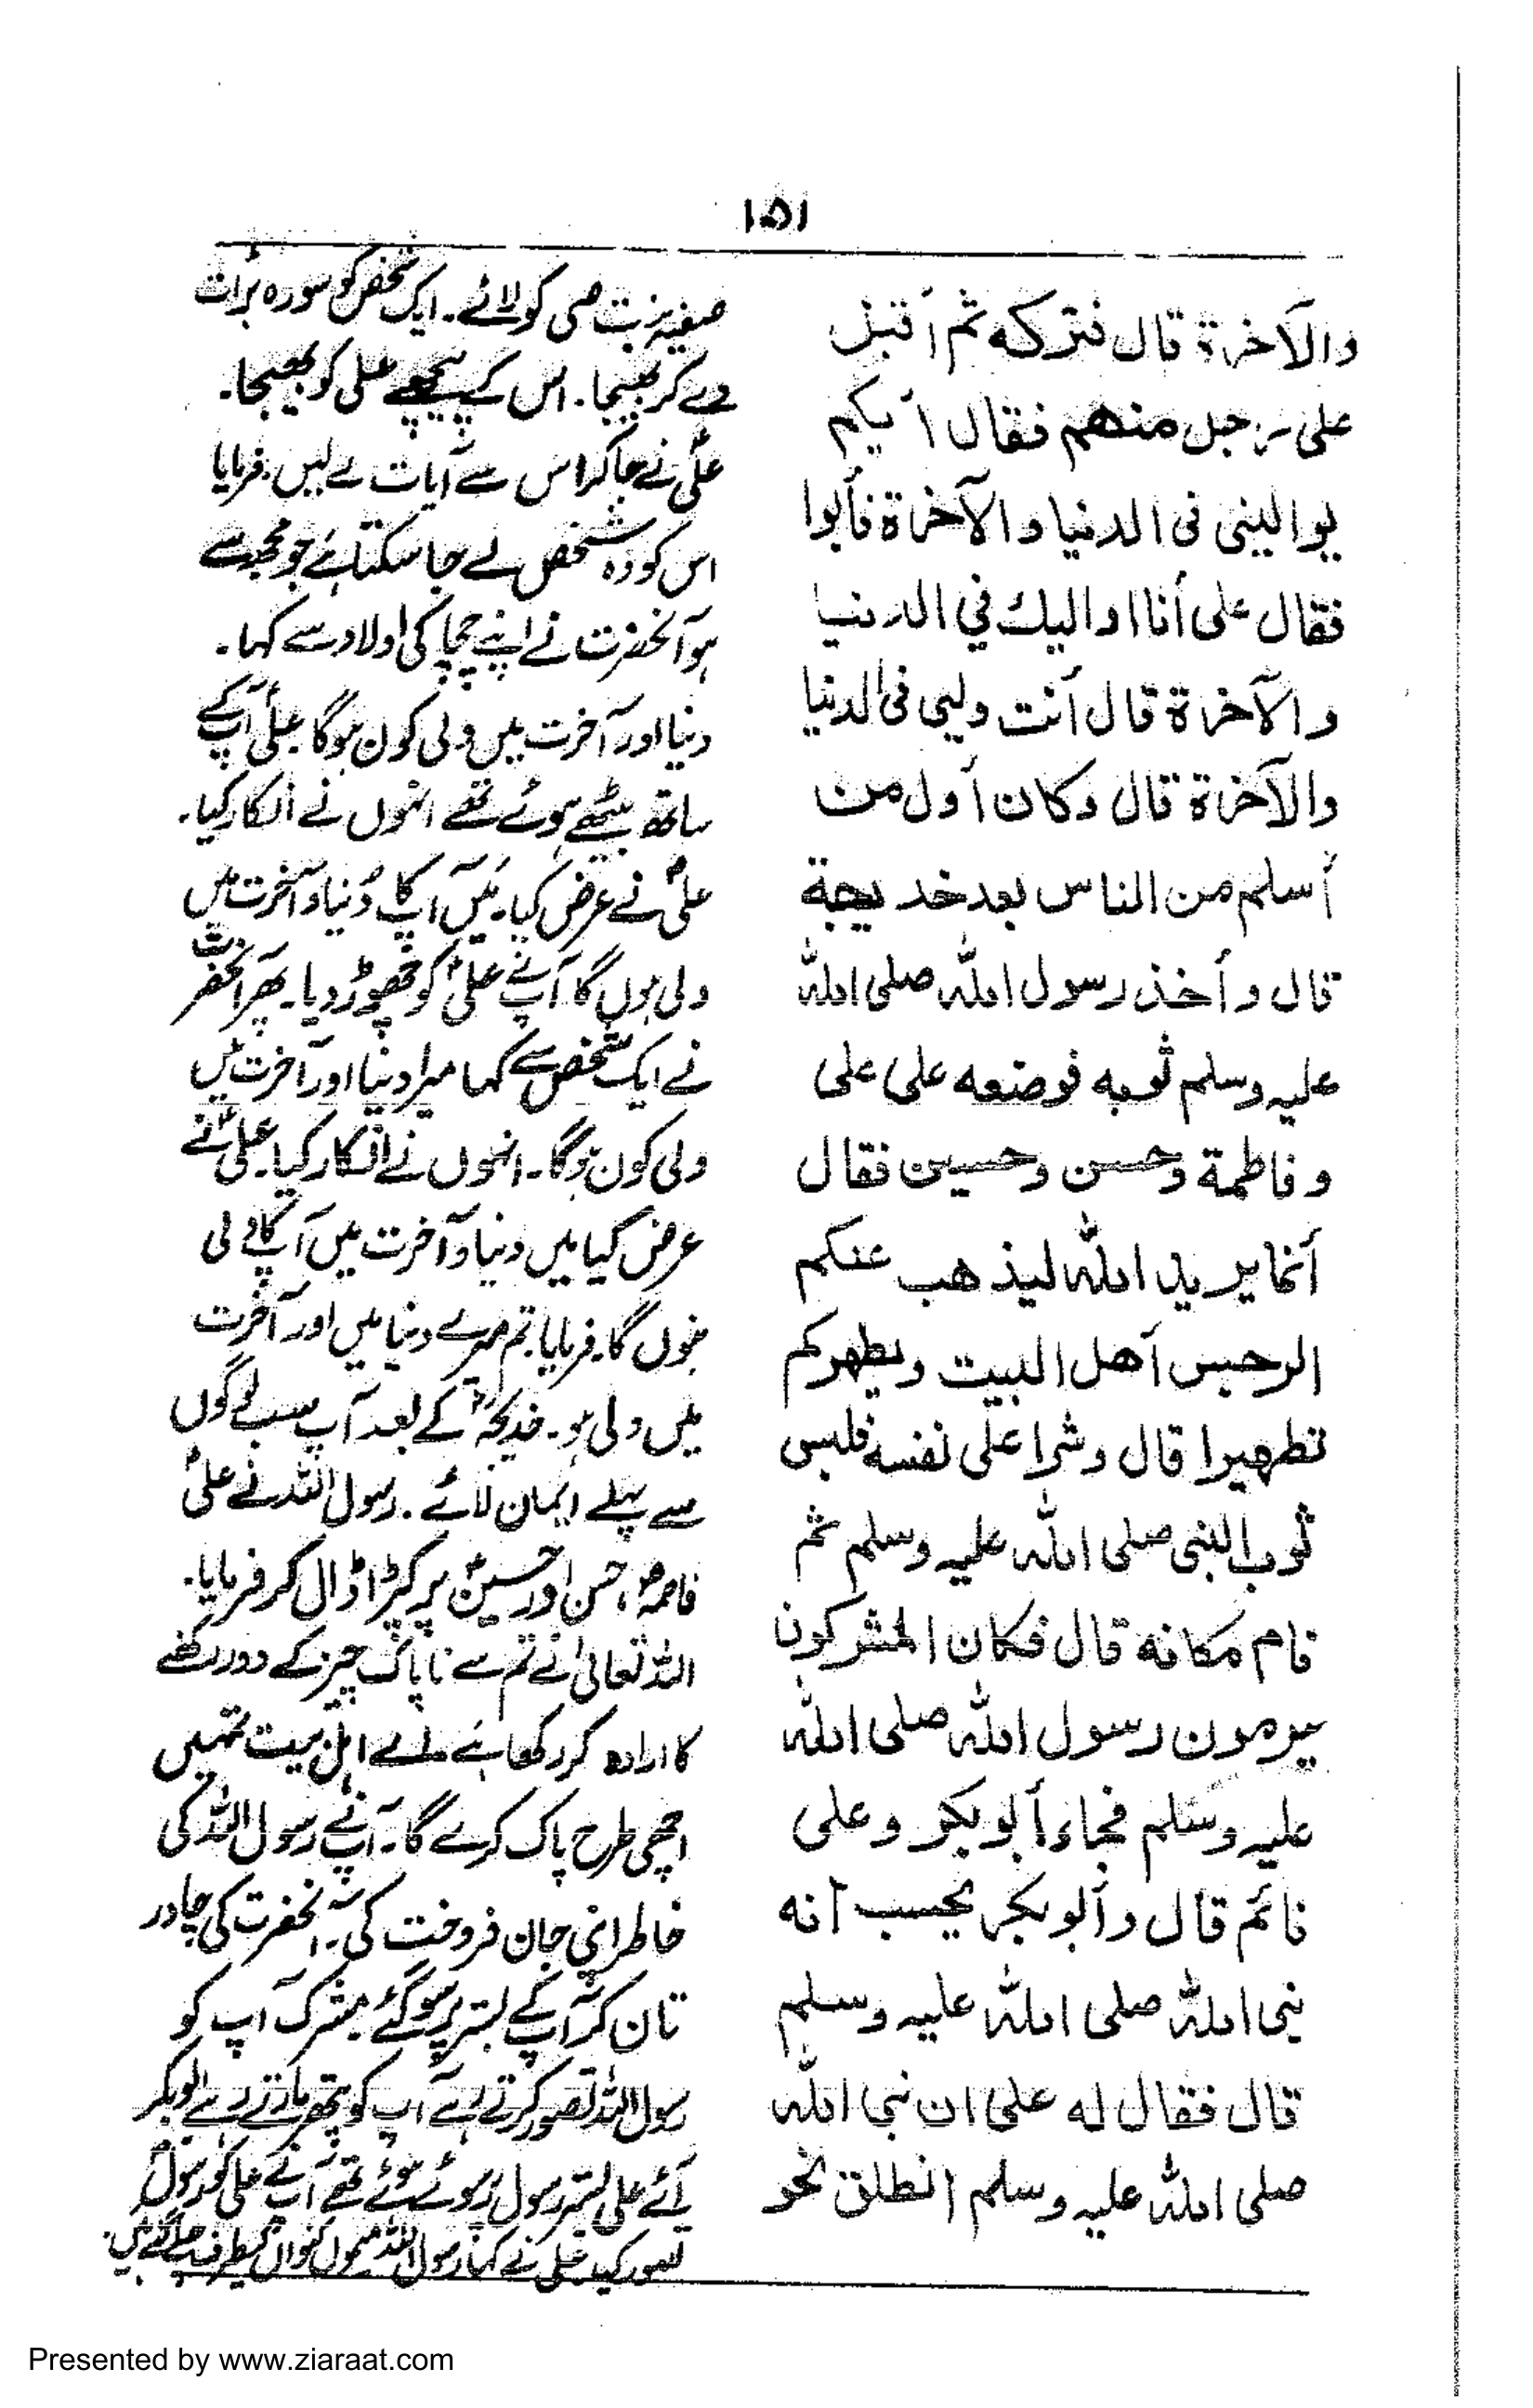 ۱۵۱
والآخرة قال فتركه ثم أقبل
على رجل منهم فقال أيكم
يواليني في الدنيا والآخرة فأبوا
فقال على أنا اواليك في الدنيا
والآخرة قال أنت وليي في الدنيا
والآخرة قال وكان أول من
أسلم من الناس بعد خديجة
قال وأخذ رسول الله صلى الله
عليه وسلم ثوبه فوضعه على على
وفاطمة وحسن وحسين فقال
أنما يريد الله ليذهب عنكم
الرجس أهل البيت ويطهركم
تطهيرا قال وشرا على نفسه فلبس
ثوب النبي صلى الله عليه وسلم ثم
نام مكانه قال فكان المشركون
يرمون رسول الله صلى الله
عليه وسلم فجاء أبو بكر وعلى
نائم قال وأبو بكر يحسب أنه
نبي الله صلى الله عليه وسلم
قال فقال له على ان نبي الله
صلى الله عليه وسلم انطلق نحو
صفیہ بنت حی کو لائے۔ ایک شخص کو سورہ برأت
دے کر بھیجا۔ اس کے پیچھے علی کو بھیجا۔
علیؑ نے جا کر اس سے آیات لے لیں۔ فرمایا
اس کو وہ شخص لے جا سکتا ہے جو مجھ سے
ہو آنحضرت نے اپنے چچا کی اولاد سے کہا۔
دنیا اور آخرت میں ولی کون ہوگا۔ علیؑ آپ کے
ساتھ بیٹھے ہوئے تھے انہوں نے انکار کیا۔
علیؑ نے عرض کیا۔ میں آپ کا دُنیا و آخرت میں
ولی ہوں گا آپ نے علیؑ کو چھوڑ دیا۔ پھر آنحضرت
نے ایک شخص سے کہا میرا دنیا اور آخرت میں
ولی کون ہوگا۔ انہوں نے انکار کیا۔ علیؑ نے
عرض کیا میں دنیا و آخرت میں آپ کا ولی
بنوں گا۔ فرمایا تم میرے دنیا میں اور آخرت
میں ولی ہو۔ خدیجہؑ کے بعد آپ سب لوگوں
سے پہلے ایمان لائے۔ رسول اللہ نے علیؑ
فاطمہؑ، حسن اور حسینؑ پر کپڑا ڈال کر فرمایا۔
اللہ تعالیٰ نے تم سے ناپاک چیز کے دور رکھنے
کا ارادہ کر رکھا ہے اے اہل بیت تمہیں
اچھی طرح پاک کرے گا۔ آپ نے رسول اللہ کی
خاطر اپنی جان فروخت کی۔ آنحضرت کی چادر
تان کر آپ کے بستر پر سو گئے مشرک آپ کو
رسول اللہ تصور کرتے رہے آپ کو پتھر مارتے رہے ابوبکر
آئے علی بستر رسول پر سوئے ہوئے تھے آپ نے علی کو رسولؐ
تصور کیا۔ علی نے کہا رسول اللہ میمون کنواں کی طرف چلے گئے ہیں۔
Presented by www.ziaraat.com